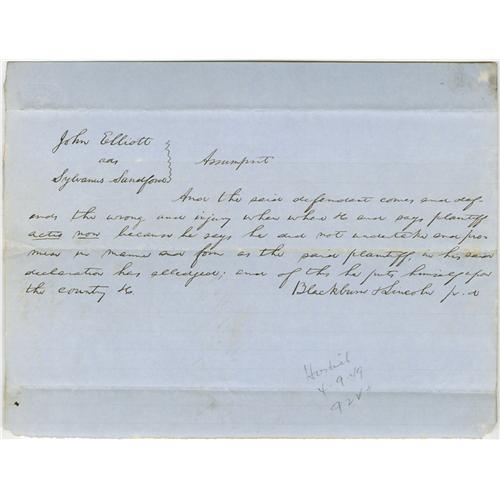 John Elliott
ads
Sylvanus Sandford
Assumpsit
And the said defendant comes and def-
ends the wrong and injury when where &c and says plaintiff
actio non because he says he did not undertake and pro-
mise in manner and form as the said plaintiff, in his said
declaration has alledged; and of this he puts himself upon
the county &c
Blackburn & Lincoln p. d
4-9-49